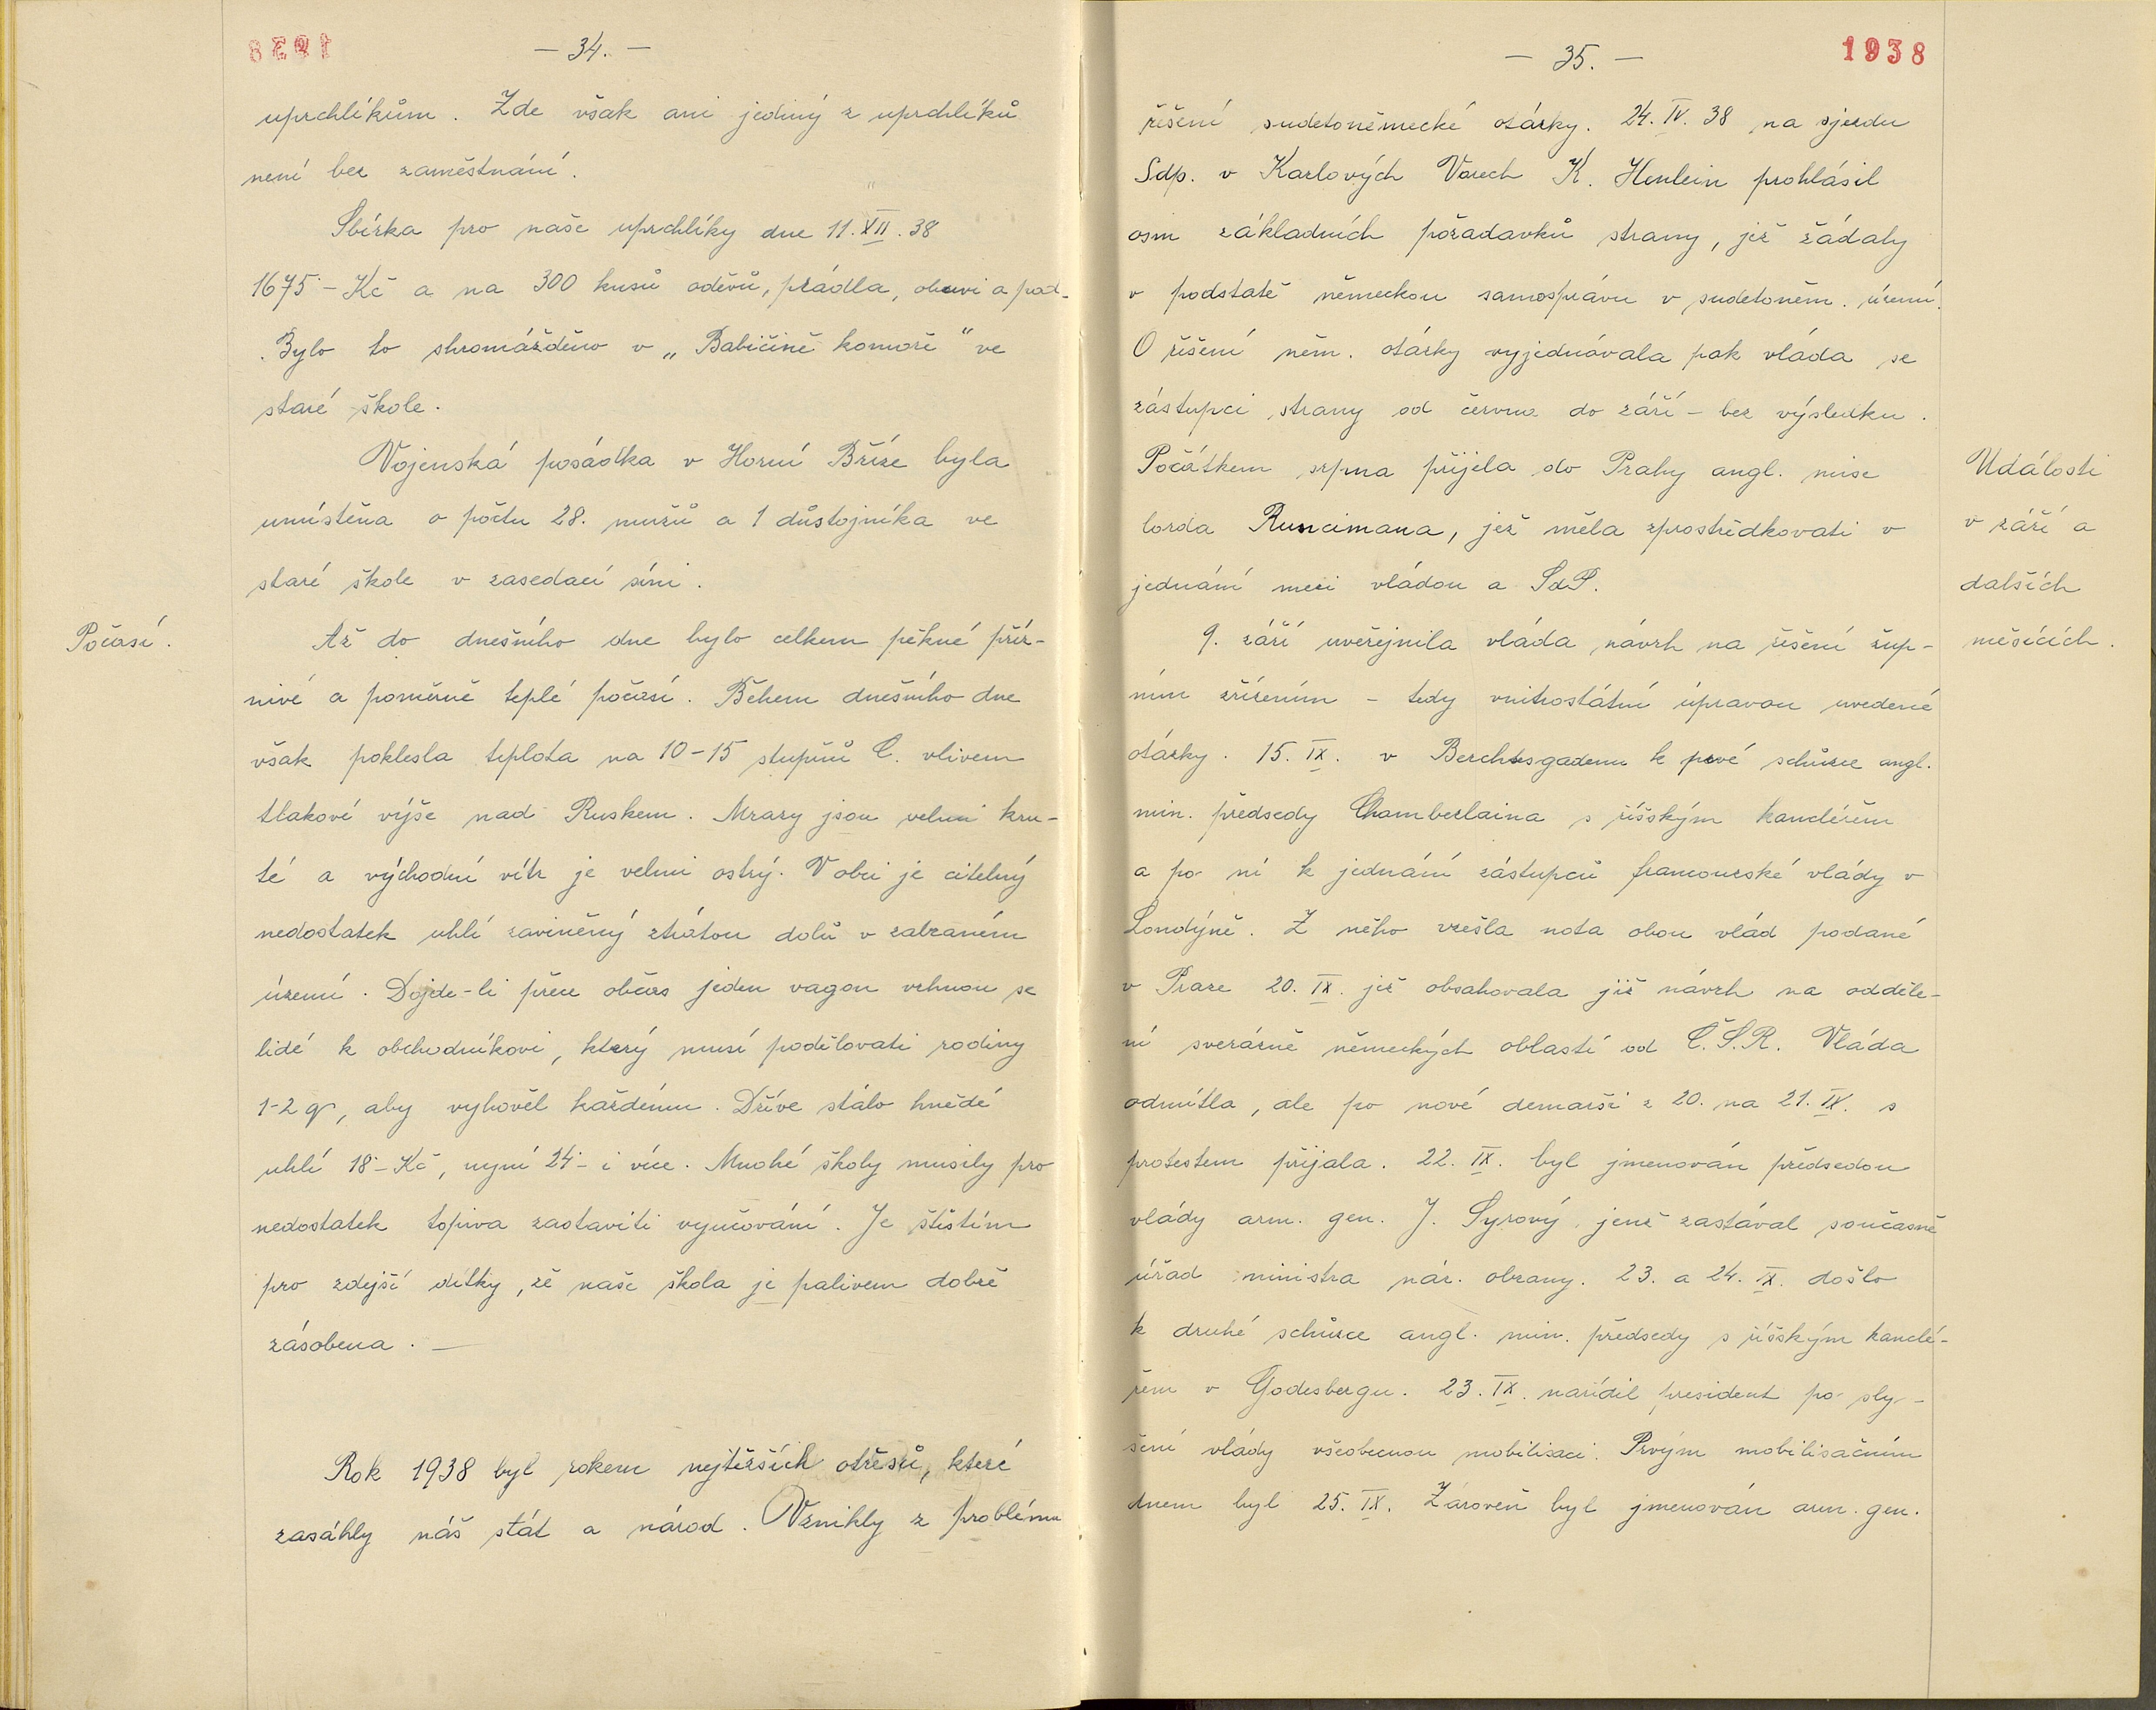 1938
— 34. —
uprchlíkům. Zde však ani jediný z uprchlíků
není bez zaměstnání.
Sbírka pro naše uprchlíky dne 11. XII. 38
1675·– Kč a na 300 kusů oděvů, prádla, obuvi a pod.
Bylo to shromážděno v „Babiččině komoře“ ve
staré škole.
Vojenská posádka v Horní Bříze byla
umístěna o počtu 28. mužů a 1 důstojníka ve
staré škole v zasedací síni.
Počasí.
Až do dnešního dne bylo celkem pěkné příz-
nivé a poměrně teplé počasí. Během dnešního dne
však poklesla teplota na 10–15 stupňů C. vlivem
tlakové výše nad Ruskem. Mrazy jsou velmi kru-
té a východní vítr je velmi ostrý. V obci je citelný
nedostatek uhlí zaviněný ztrátou dolů v zabraném
území. Dojde-li přece občas jeden vagon vrhnou se
lidé k obchodníkovi, který musí podělovati rodiny
1-2 q, aby vyhověl každému. Dříve stálo hnědé
uhlí 18·– Kč, nyní 24·– i více. Mnohé školy musily pro
nedostatek topiva zastaviti vyučování. Je štěstím
pro zdejší dítky, že naše škola je palivem dobře
zásobena. —
Rok 1938 byl rokem nejtěžších otřesů, které
zasáhly náš stát a národ. Vznikly z problému
— 35. —
1938
řešení sudetoněmecké otázky. 24. IV. 38 na sjezdu
Sdp. v Karlových Varech K. Henlein prohlásil
osm základních požadavků strany, jež žádaly
v podstatě německou samosprávu v sudetoněm. území.
O řešení něm. otázky vyjednávala pak vláda se
zástupci strany od června do září – bez výsledku.
Počátkem srpna přijela do Prahy angl. mise
lorda Runcimana, jež měla zprostředkovati v
jednání mezi vládou a SdP.
Události
v září a
dalších
měsících.
9. září uveřejnila vláda návrh na řešení žup-
ním zřízením – tedy vnitrostátní úpravou uvedené
otázky. 15. IX. v Berchtesgadenu k prvé schůzce angl.
min. předsedy Chamberlaina s říšským kancléřem
a po ní k jednání zástupců francouzské vlády v
Londýně. Z něho vzešla nota obou vlád podané
v Praze 20. IX. jež obsahovala již návrh na odděle-
ní svérázně německých oblastí od Č.S.R. Vláda
odmítla, ale po nové demarši z 20. na 21. IX. s
protestem přijala. 22. IX. byl jmenován předsedou
vlády arm. gen. J. Syrový, jenž zastával současně
úřad ministra nár. obrany. 23. a 24. IX. došlo
k druhé schůzce angl. min. předsedy s říšským kanclé-
řem v Godesbergu. 23. IX. nařídil president po sly-
šení vlády všeobecnou mobilisaci. Prvým mobilisačním
dnem byl 25. IX. Zároveň byl jmenován arm. gen.